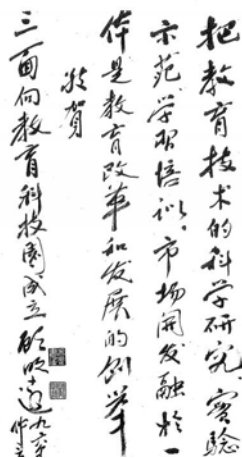 把教育技术的科学研究实验
示范学习培训市场开发融於一
体是教育改革和发展的创举
敬贺
三面向教育科技園成立 顾明远 九六年